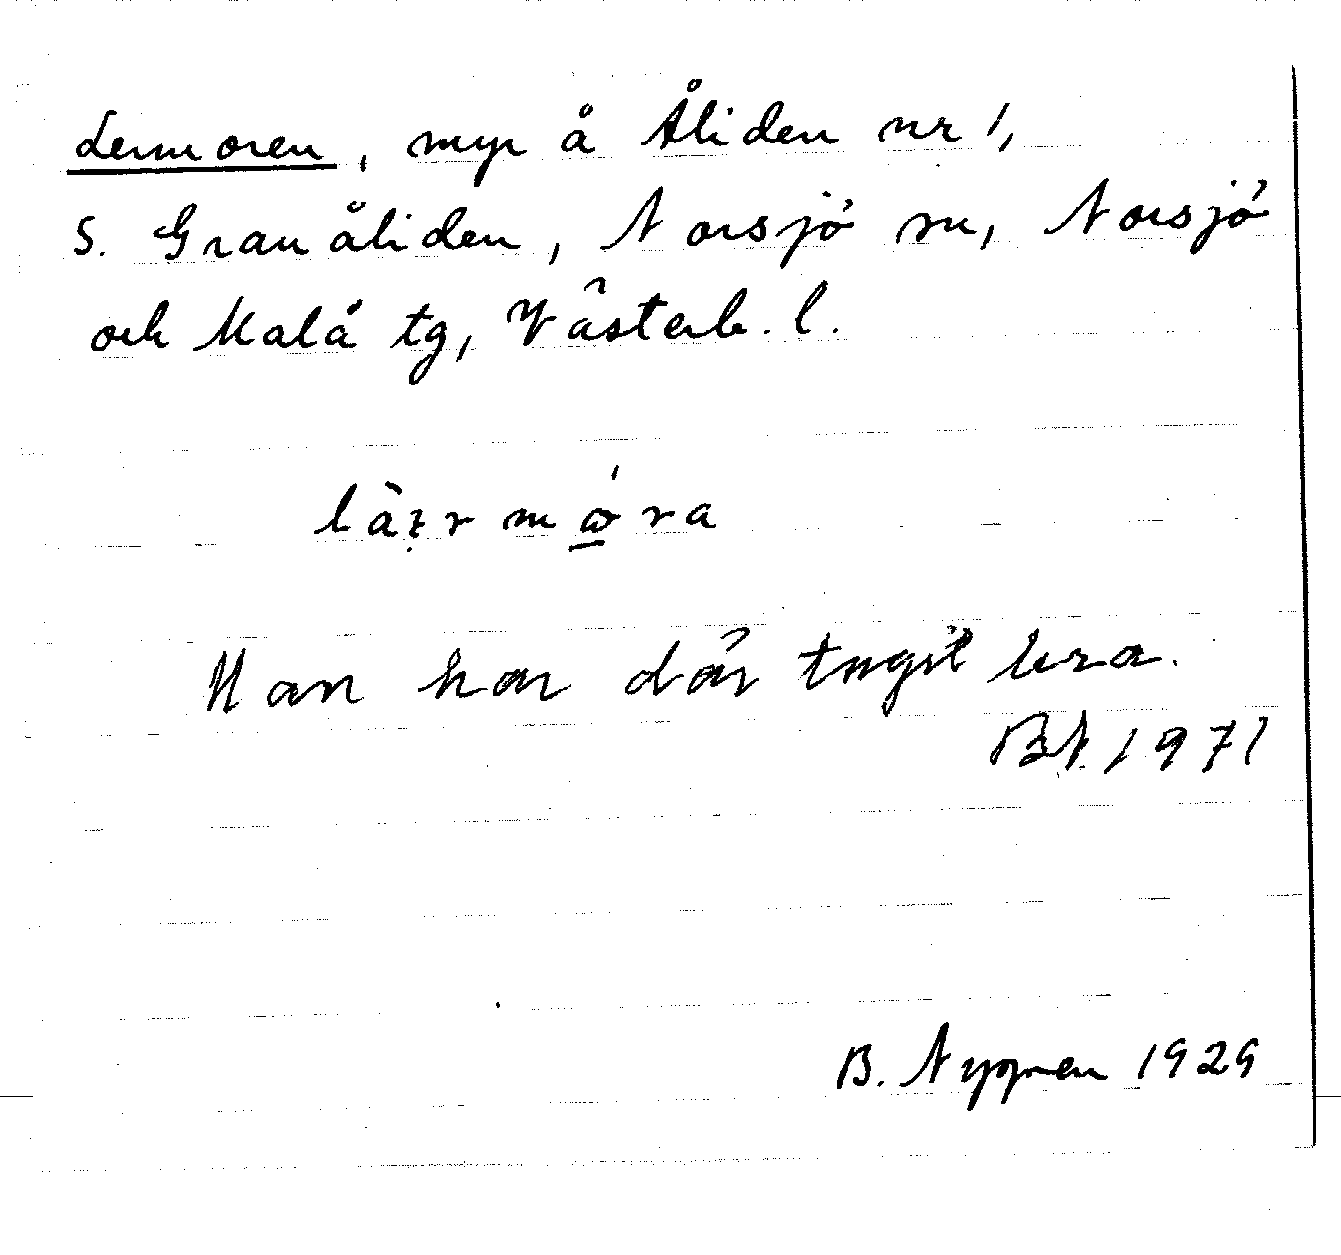 Lermoren, myr å Åliden nr 1,
S. Granåliden, Norsjö sn, Norsjö
och Malå tg, Västerb. l.
Man har där tagit lera.
BN. 1971
B. Nygren 1929